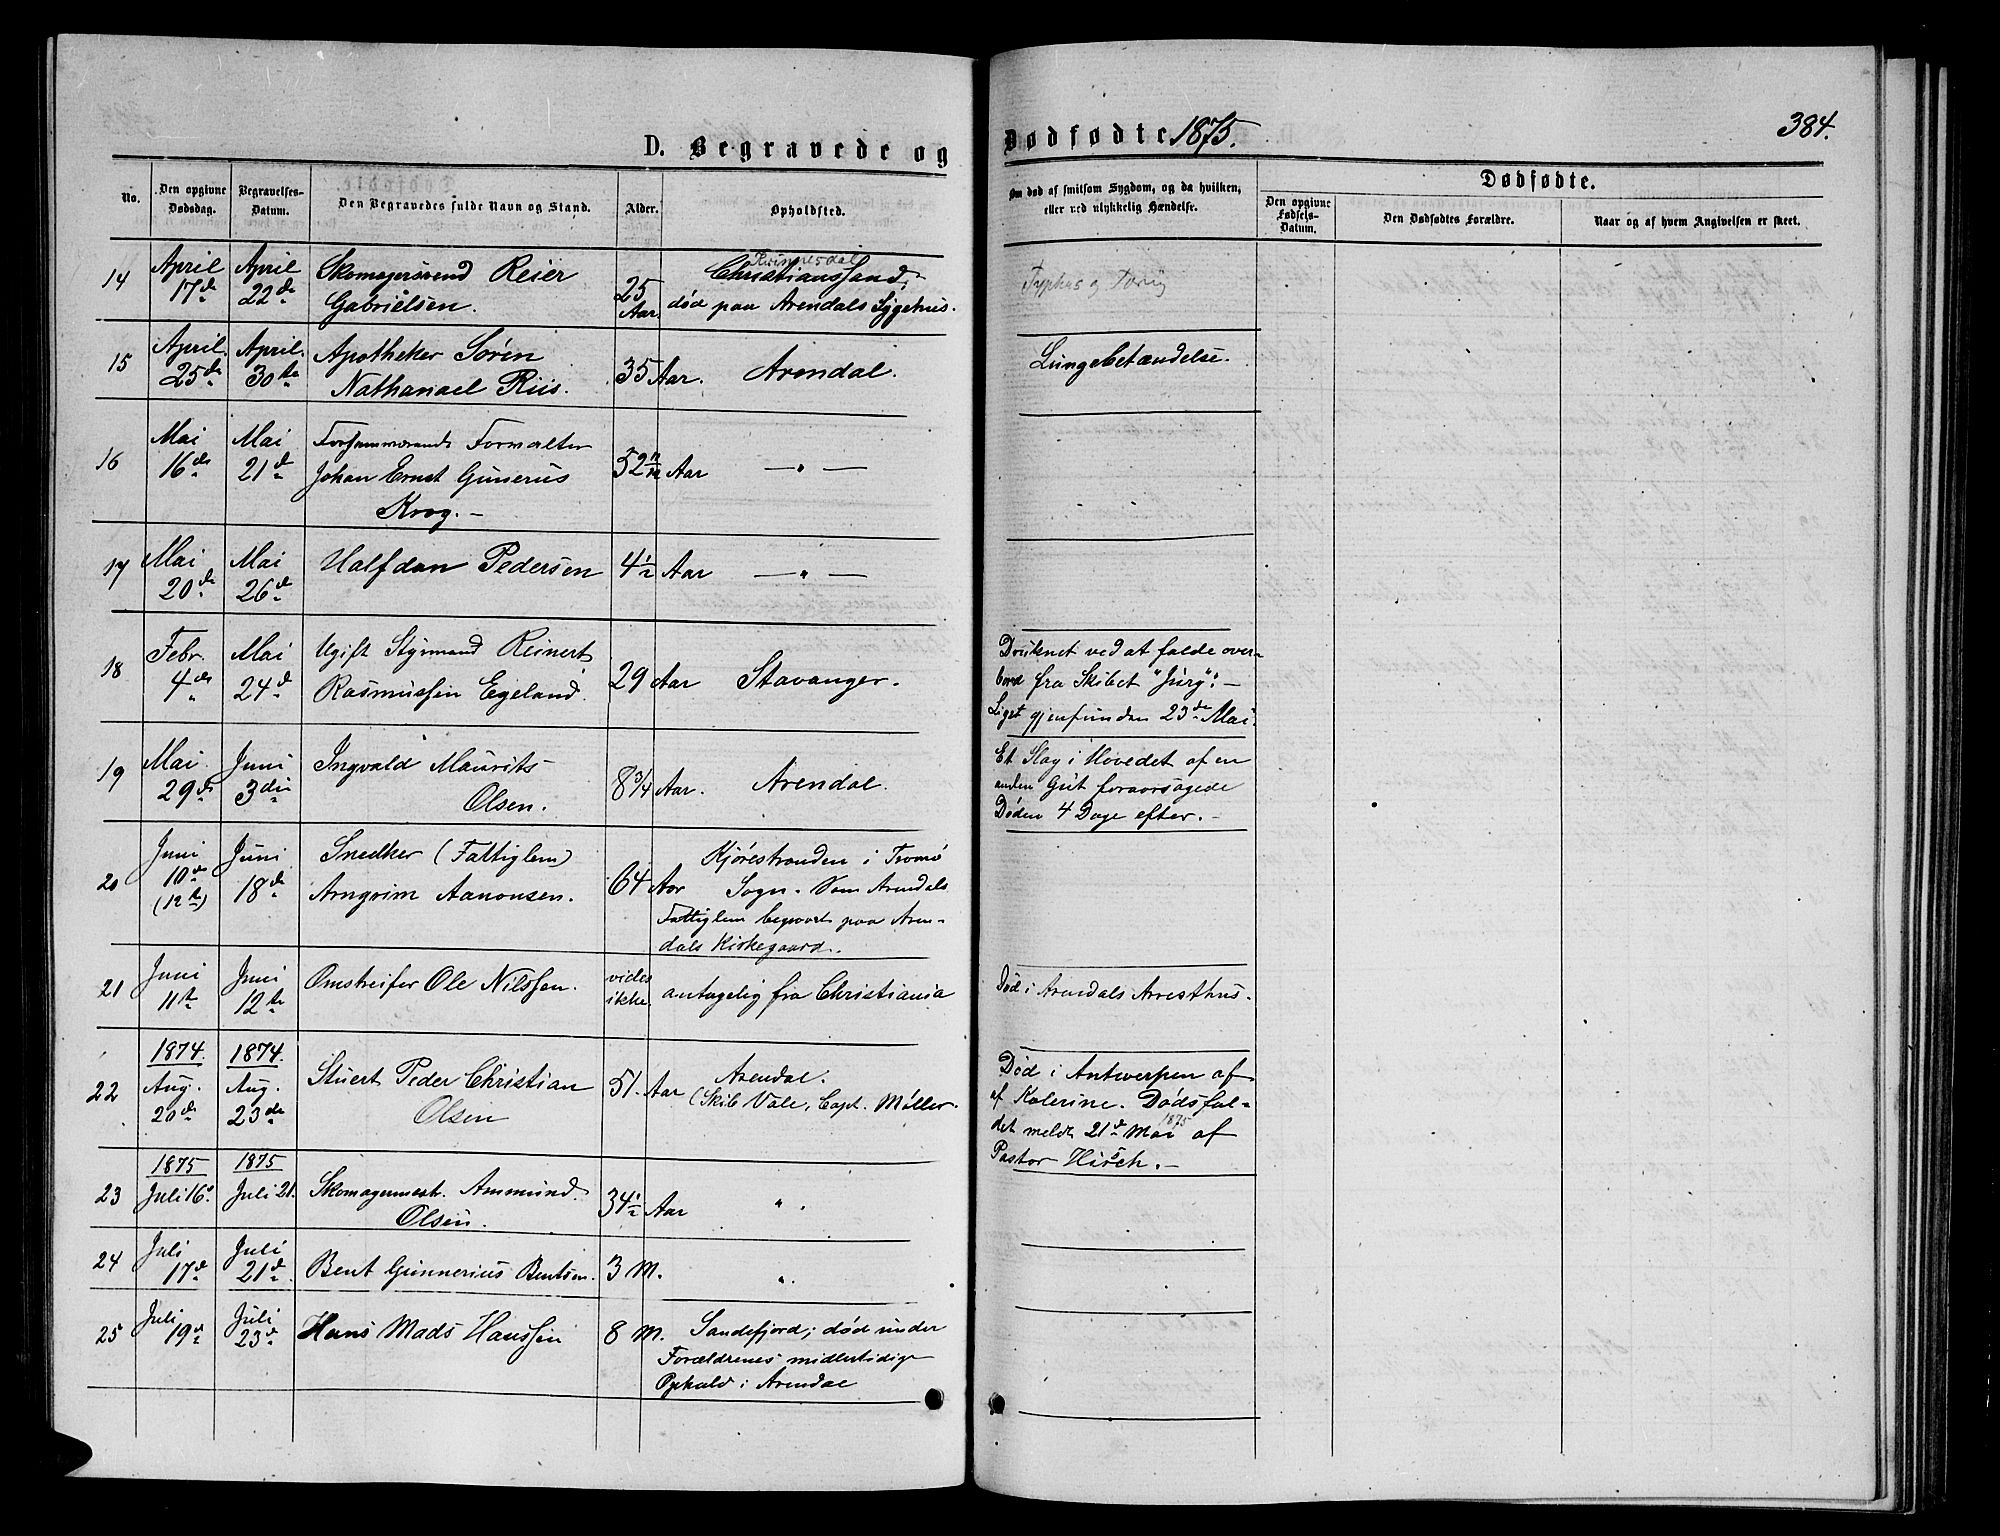 D. Begravede og Dødfødte 1875.
384.
No.
Den opgivne Dødsdag.
Begravelses-Datum.
Den Begravedes fulde Navn og Stand.
Alder.
Opholdsted.
Om død af smitsom Sygdom, og da hvilken, eller ved ulykkelig Hændelse.
Dødfødte.
Den opgivne Fødsels-Datum.
Den Dødfødtes Forældre.
Naar og af hvem Angivelsen er skeet.
14
April 17de
April 22de
Skomagersvend Reier
Gabrielsen.
25 Aar.
Christianssand,
død paa Arendals Sygehus.
Typhus og
15
April 25de
April 30te
Apotheker Sørèn
Nathanael Riis.
35 Aar.
Arendal.
Lungebetændelse.
16
Mai 16de
Mai 21de
Forvalter
Johan Ernst Gunerus
Krog. –
52 Aar
— „ —
17
Mai 20de
Mai 26de
Halfdan Pedersen
4½ Aar
— „ —
18
Febr. 4de
Mai 24de
Ugift Styrmand Reinert
Rasmussen Egeland.
29 Aar
Stavanger.
Druknet ved at falde over-
bord fra Skibet "Jury". –
Liget gjenfunden 23de Mai.
19
Mai 29de
Juni 3die
Ingvald Maurits
Olsen.
8¾ Aar.
Arendal.
Et Slag i Hovedet af en
anden Gut foraarsagede
Døden 4 Dage efter. –
20
Juni 10de (12te)
Juni 18de
Snedker (Fattiglem)
Arngrim Aanonsen.
64 Aar
Kjørestranden i Tromø
Sogn. Som Arendals
Fattiglem begravet paa Aren-
dals Kirkegaard.
21
Juni 11te
Juni 12te
Omstreifer Ole Nilssen.
vides ikke
antagelig fra Christiania
Død i Arendals Arresthus.
22
1874. Aug. 20de
1874. Aug. 23de
Stuert Peder Christian
Olsen
51. Aar
Arendal.
(Skib Vale, Capt. Møller.
Død i Antwerpen af
af Kolerine. Dødsfal-
det meldt 21de Mai 1875 af
Pastor Hirsch. –
23
1875 Juli 16de
1875 Juli 21.
Skomagermestr. Ammund
Olsen.
34½ Aar
„ .
24
Juli 17de
Juli 21de
Bent Gunnerius Bentsen.
3 M.
„ .
25
Juli 19de
Juli 23de
Hans Mads Hanssen
8 M.
Sandefjord; død under
Forældrenes midlertidige
Ophold i Arendal